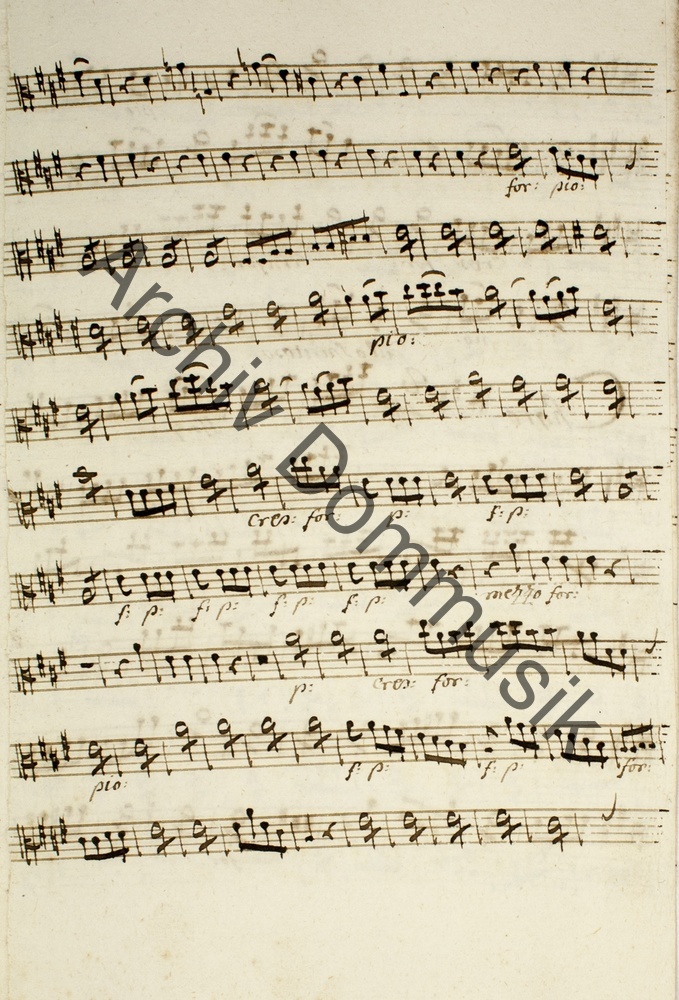 for: pio:
pio:
cres: for: p: f: p:
f: p: f: p: f: p: f: p: mezzo for:
p: cres: for:
pio: f: p: f: p: for:
Archiv Dommusik